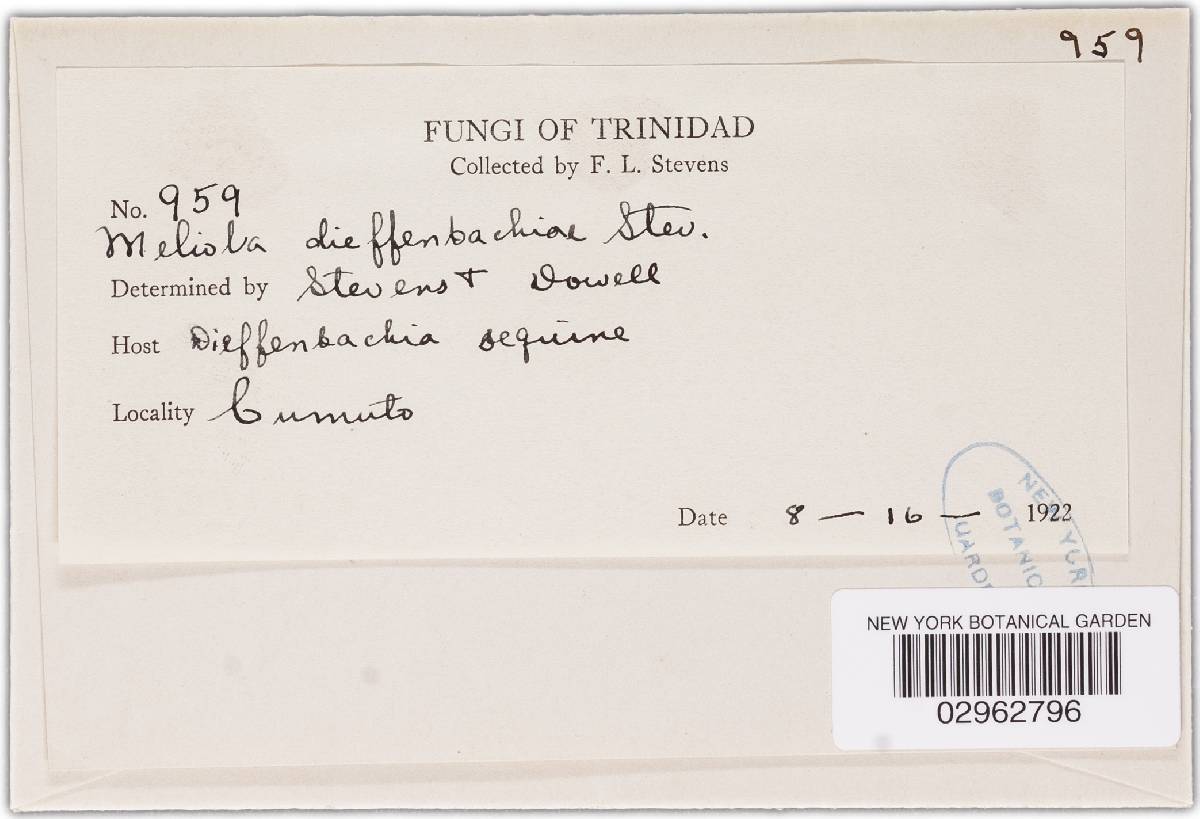 959
FUNGI OF TRINIDAD
Collected by F. L. Stevens
No. 959
Meliola dieffenbachiae Stev.
Determined by Stevens + Dowell
Host Dieffenbachia seguine
Locality Cumuto
Date 8 — 16 — 1922
NEW YORK
BOTANIC
GARDE
NEW YORK BOTANICAL GARDEN
02962796